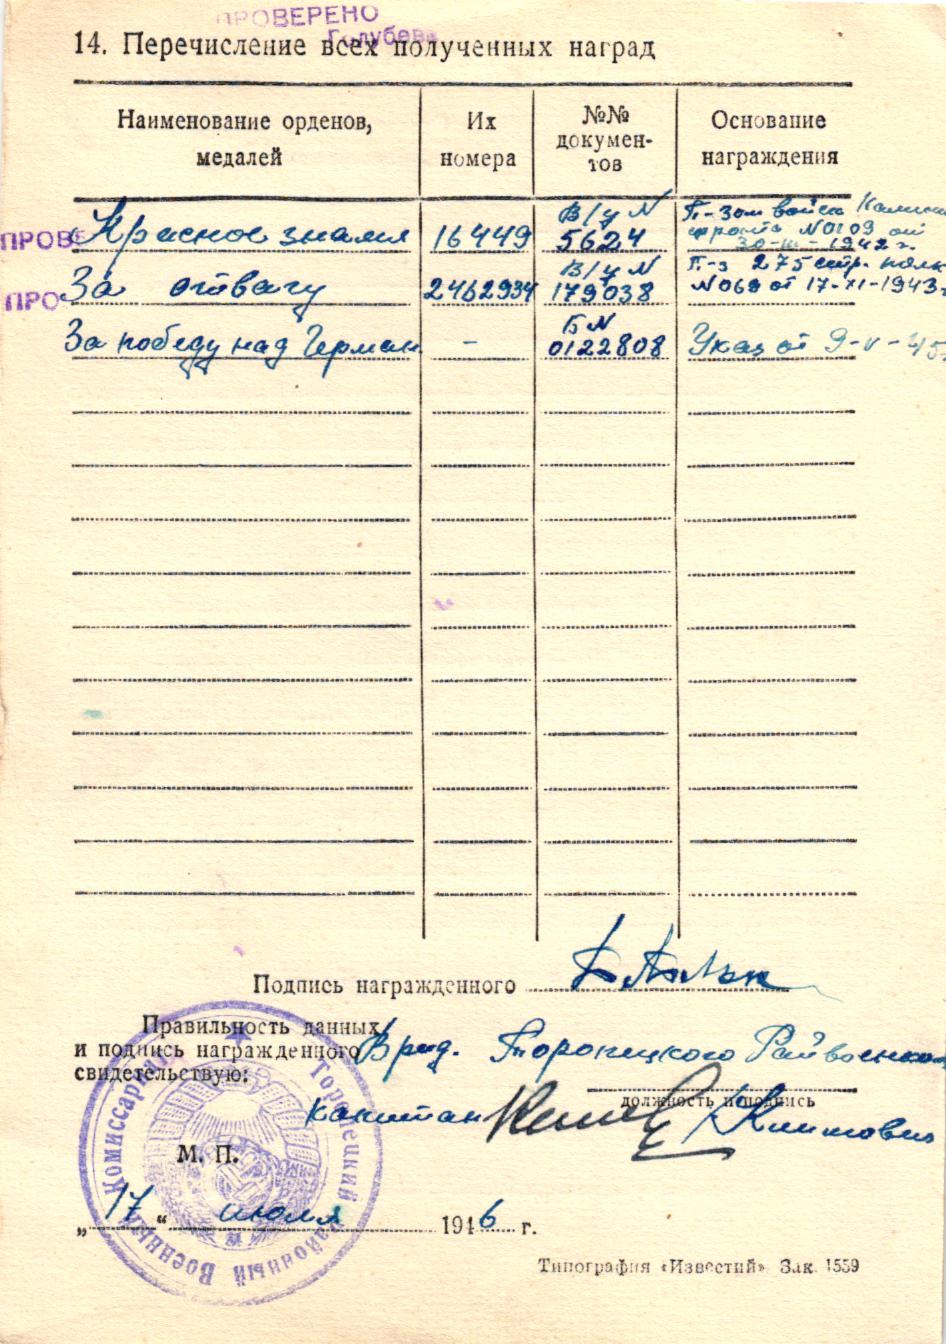 ПРОВЕРЕНО
Голубева
14. Перечисление всех полученных наград
Наименование орденов, медалей
Их номера
№№ докумен-тов
Основание награждения
ПРОВЕ
Красное знамя 16449 В/у N 5624 П-з ом войск Калинин фронта N0109 от 30-III-1942 г.
ПРО
За отвагу 2462934 В/у N 179038 П-з 275 стр. полк N069 от 17-XI-1943г
За победу над Герман. - Б N 0122808 Указ от 9-V-45
Подпись награжденного
Правильность данных
и подпись награжденного Врид. Торопецкого Райвоенком
свидетельствую:
должность и подпись
капитан Климович
М. П.
Торопецкий Районный Военный Комиссариат
„17“ июля 1946 г.
Типография «Известий» Зак. 1559